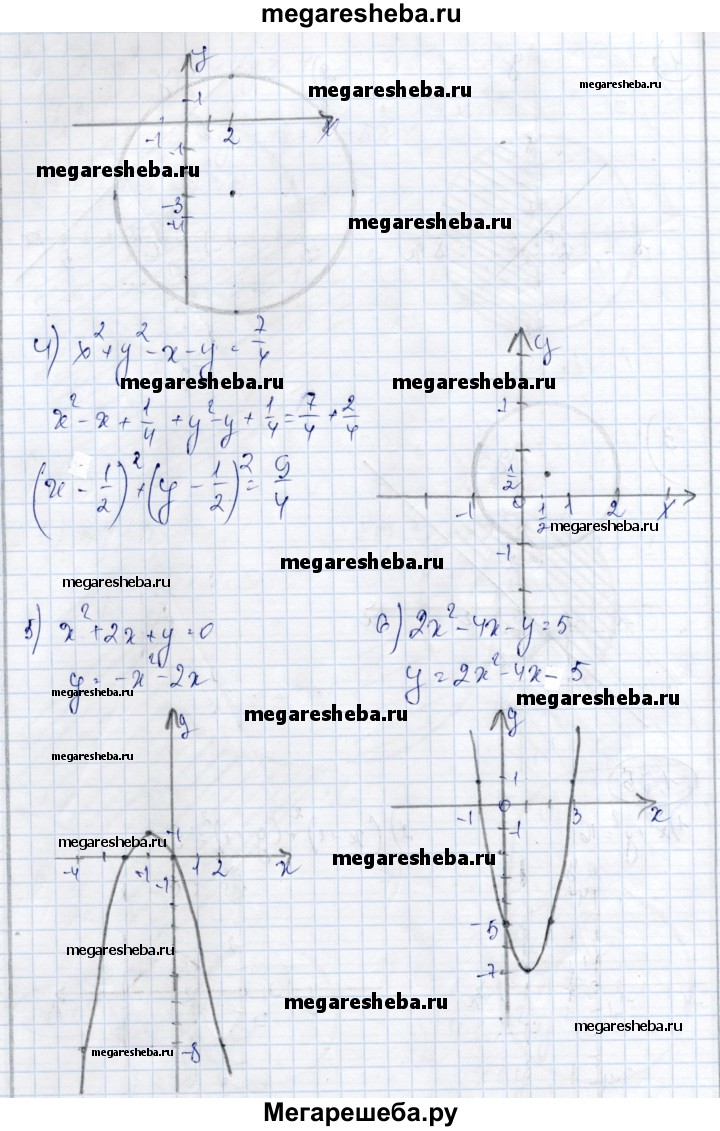 megaresheba.ru
y
megaresheba.ru
megaresheba.ru
1
-1 2 x
-1
megaresheba.ru
-3
-4
megaresheba.ru
4) x² + y² - x - y = 7/4
y
megaresheba.ru
megaresheba.ru
x² - x + 1/4 + y² - y + 1/4 = 7/4 + 2/4
(x - 1/2)² + (y - 1/2)² = 9/4
1/2
-1 0 1/2 1 2 x
megaresheba.ru
-1
megaresheba.ru
megaresheba.ru
5) x² + 2x + y = 0
6) 2x² - 4x - y = 5
y = -x² - 2x
y = 2x² - 4x - 5
megaresheba.ru
megaresheba.ru
megaresheba.ru
y
y
megaresheba.ru
1
-1 0 3 x
-1
megaresheba.ru
1
megaresheba.ru
-4 -1 1 2 x
-1
-5
megaresheba.ru
-7
megaresheba.ru
megaresheba.ru
megaresheba.ru
-8
Мегарешеба.ру